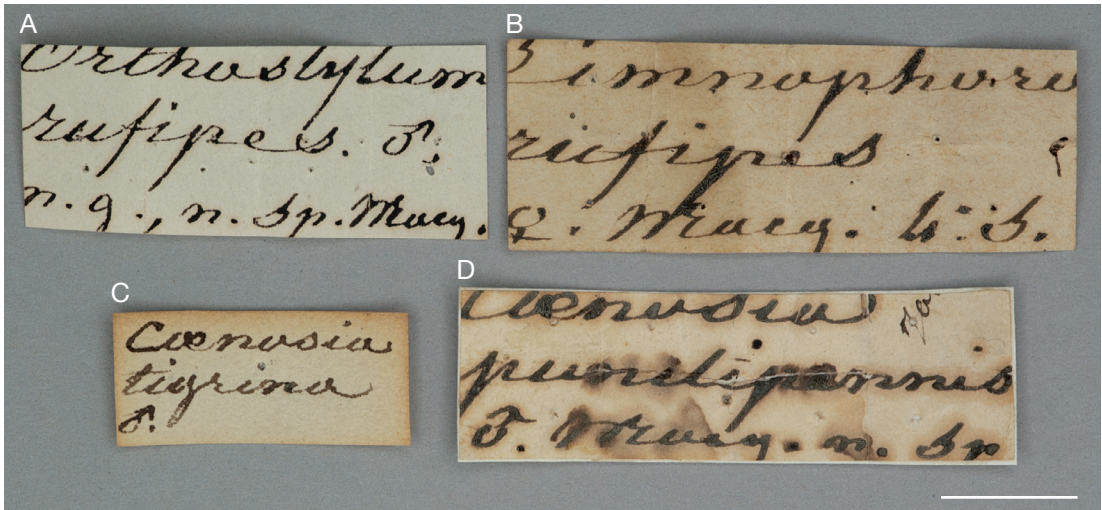 A
Orthostylum
rufipes. ♂.
n. g., n. Sp. Macq.
B
Limnophora
rufipes
♀. Macq. h. S.
C
Cœnosia
tigrina
♂.
D
Cœnosia
punctipennis
♂. Macq. n. Sp